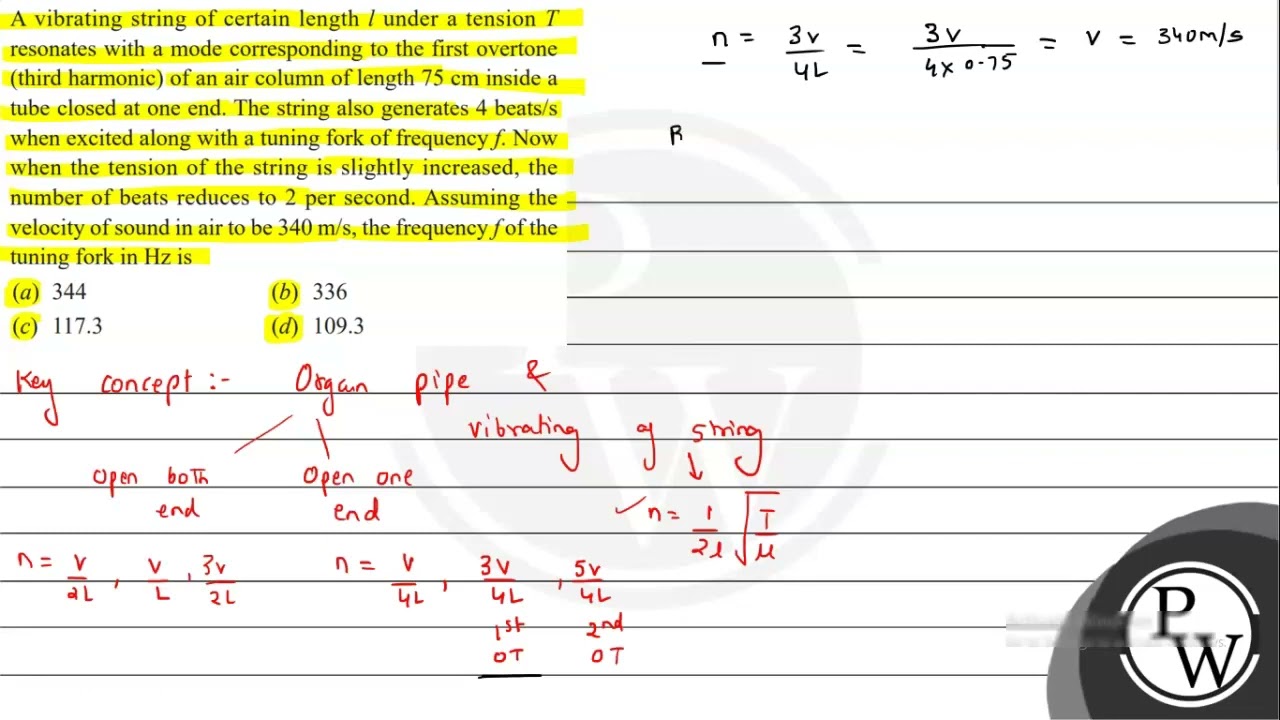 A vibrating string of certain length l under a tension T
resonates with a mode corresponding to the first overtone
(third harmonic) of an air column of length 75 cm inside a
tube closed at one end. The string also generates 4 beats/s
when excited along with a tuning fork of frequency f. Now
when the tension of the string is slightly increased, the
number of beats reduces to 2 per second. Assuming the
velocity of sound in air to be 340 m/s, the frequency f of the
tuning fork in Hz is
(a) 344 (b) 336
(c) 117.3 (d) 109.3
n = 3v/4L = 3v/4×0.75 = v = 340m/s
B
Key concept :- Organ pipe &
vibrating of string
Open both end
Open one end
n = 1/2l √T/μ
n = v/2L , v/L , 3v/2L
n = v/4L , 3v/4L , 5v/4L
1st OT
2nd OT
P
W